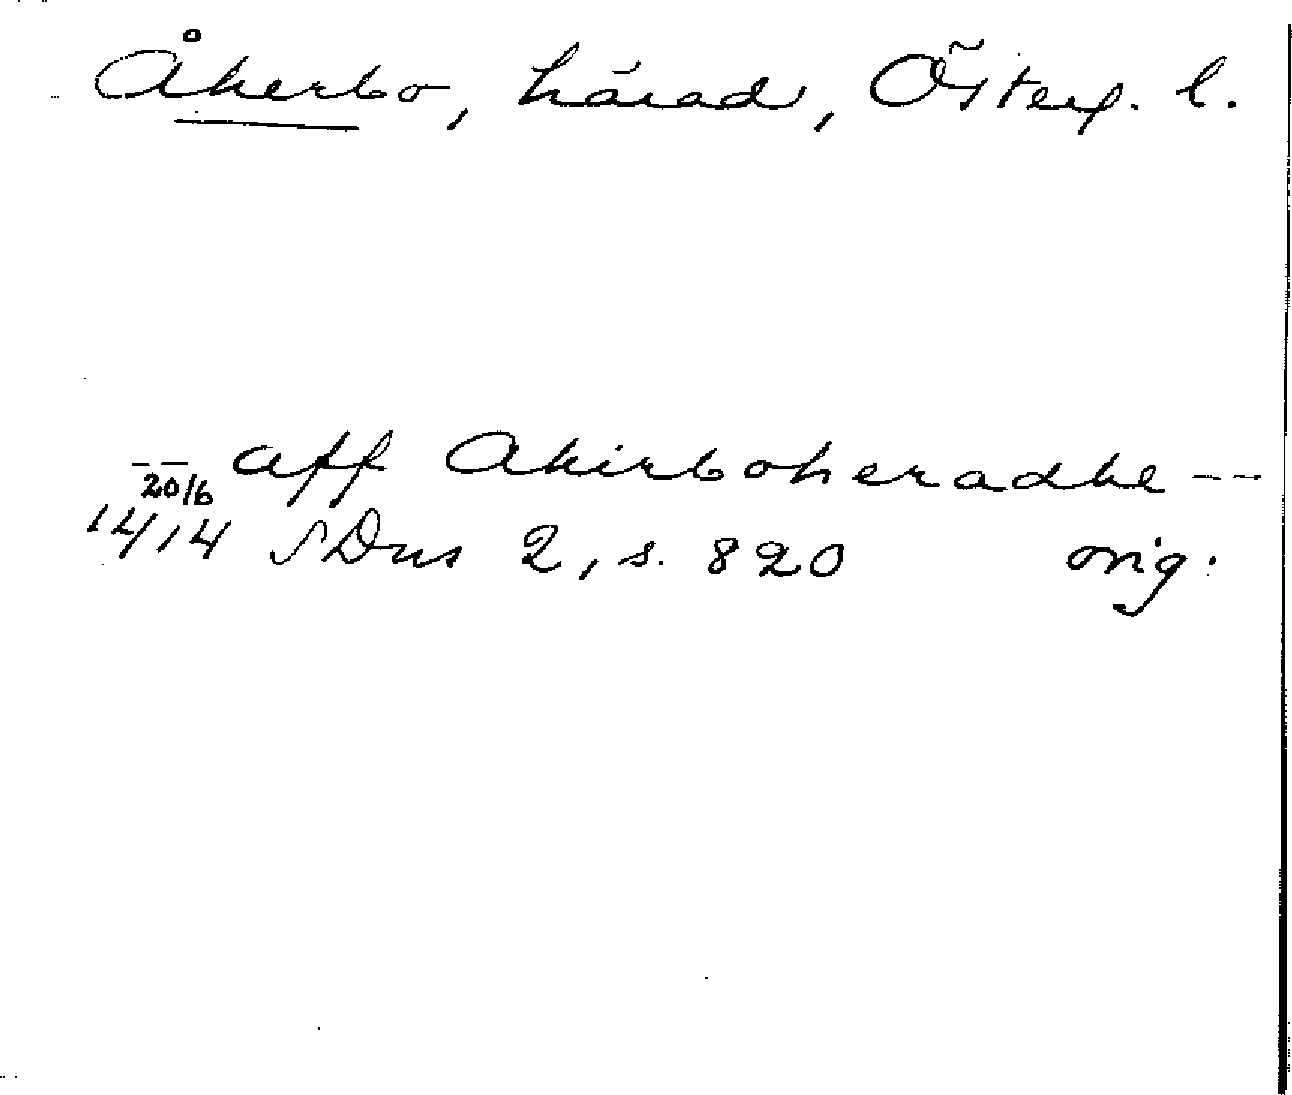 Åkerbo, härad, Österg. l.
-- aff Akirboheradhe --
20/6
1414 SDns 2, s. 820 orig.